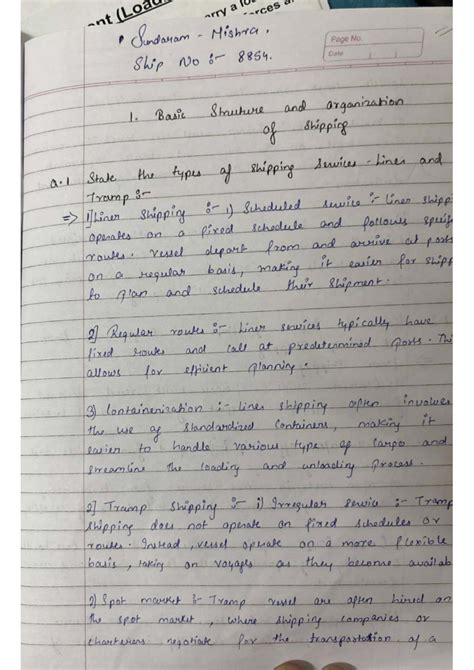 ent (Load
arry a lo
forces a
Page No.
Date
• Sundaram - Mishra.
Ship No :- 8854.
1. Basic Structure and organization
of Shipping
Q.1 State the types of Shipping Services - Liner and
Tramp :-
=> 1] Liner Shipping :- 1) Scheduled service :- Liner Shipp
operates on a fixed schedule and follows specif
routes. vessel depart from and arrive at ports
on a regular basis, making it easier for shipp
to plan and schedule their shipment.
2] Regular routes :- Liner services typically have
fixed routes and call at predetermined ports. Thi
allows for effient planning.
3) Containerization :- Liner shipping often involves
the use of standardized containers, making it
easier to handle various type of cargo and
streamline the loading and unloading process.
2] Tramp Shipping :- i) Irregular Service :- Tramp
shipping does not operate on fixed schedules or
routes. Instead, vessel operate on a more flexible
basis, taking on voyages as they become availab
2) Spot market :- Tramp vessel are often hired on
the spot market, where shipping companies or
charterers negotiate for the transportation of a